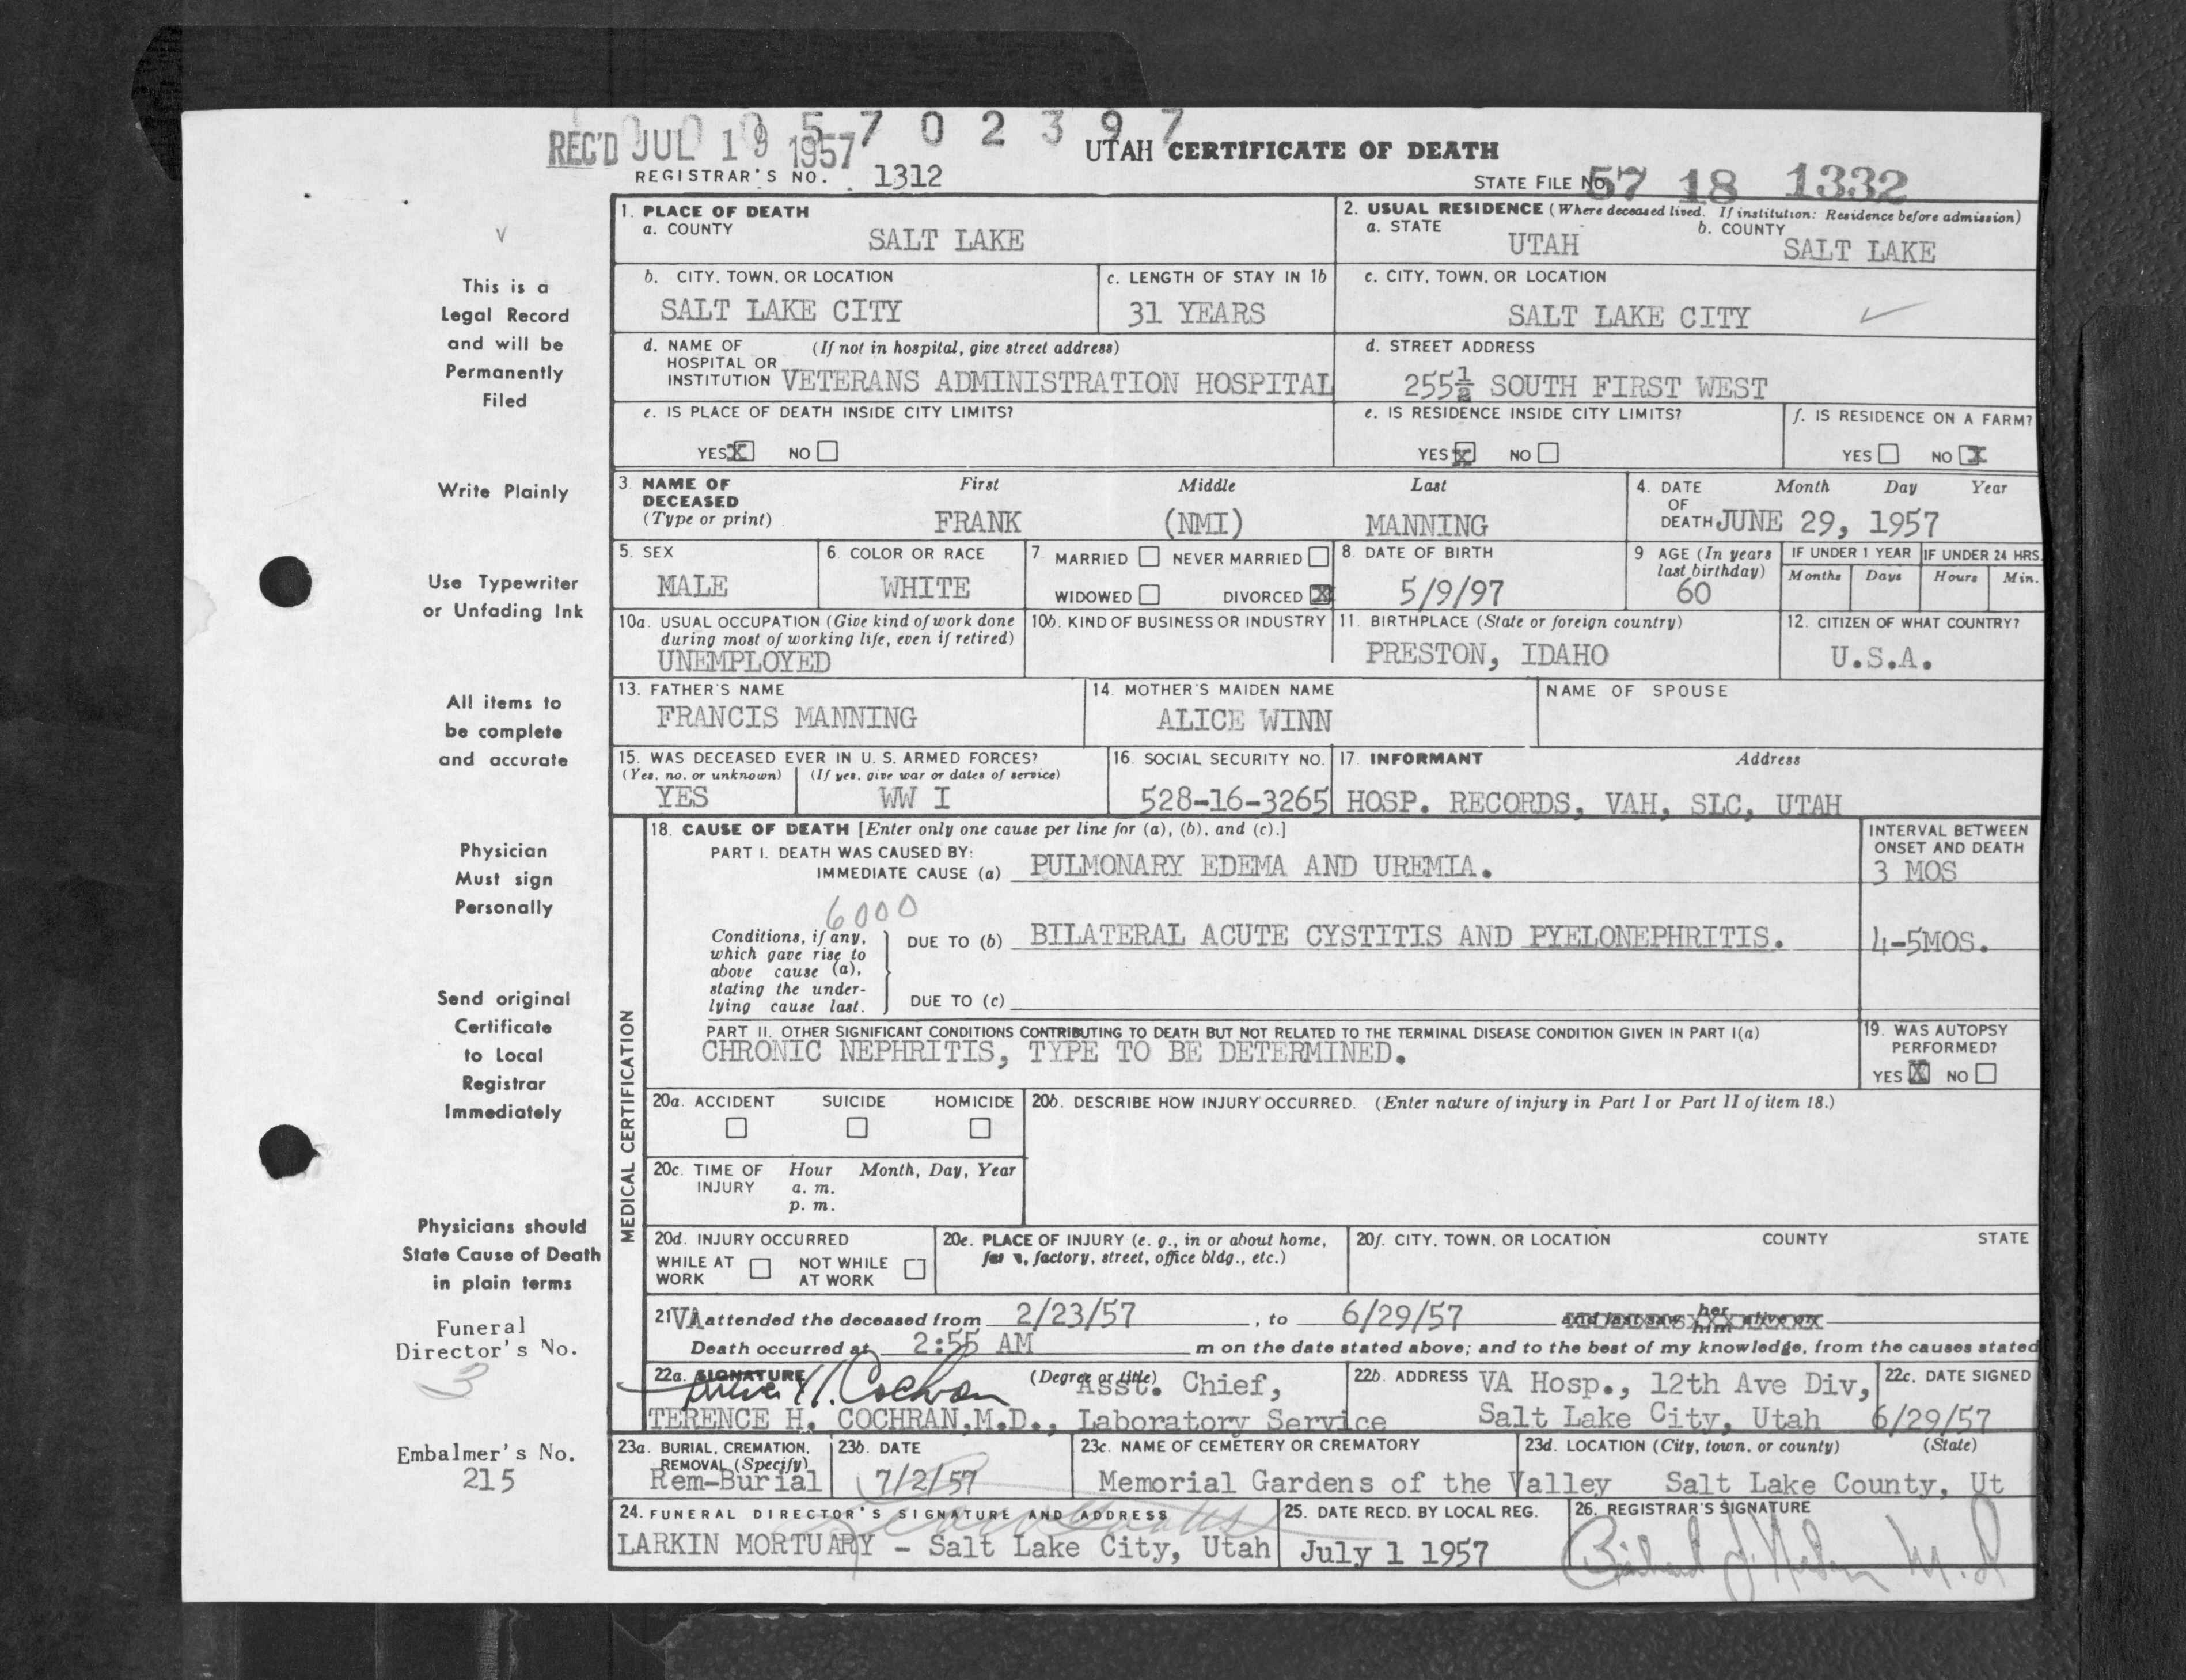 0 0 0 5 7 0 2 3 9 7
REC'D JUL 19 1957
UTAH CERTIFICATE OF DEATH
REGISTRAR'S NO. 1312
STATE FILE NO. 57 18 1332
1. PLACE OF DEATH
a. COUNTY
SALT LAKE
2. USUAL RESIDENCE (Where deceased lived. If institution: Residence before admission)
a. STATE
UTAH
b. COUNTY
SALT LAKE
b. CITY, TOWN, OR LOCATION
SALT LAKE CITY
c. LENGTH OF STAY IN 1b
31 YEARS
c. CITY, TOWN, OR LOCATION
SALT LAKE CITY
d. NAME OF (If not in hospital, give street address)
HOSPITAL OR
INSTITUTION VETERANS ADMINISTRATION HOSPITAL
d. STREET ADDRESS
255½ SOUTH FIRST WEST
e. IS PLACE OF DEATH INSIDE CITY LIMITS?
YES X NO
e. IS RESIDENCE INSIDE CITY LIMITS?
YES X NO
f. IS RESIDENCE ON A FARM?
YES NO X
3. NAME OF DECEASED
(Type or print)
First Middle Last
FRANK (NMI) MANNING
4. DATE OF DEATH
Month Day Year
JUNE 29, 1957
5. SEX
MALE
6 COLOR OR RACE
WHITE
7. MARRIED NEVER MARRIED
WIDOWED DIVORCED X
8. DATE OF BIRTH
5/9/97
9 AGE (In years last birthday)
60
IF UNDER 1 YEAR
Months Days
IF UNDER 24 HRS.
Hours Min.
10a. USUAL OCCUPATION (Give kind of work done during most of working life, even if retired)
UNEMPLOYED
10b. KIND OF BUSINESS OR INDUSTRY
11. BIRTHPLACE (State or foreign country)
PRESTON, IDAHO
12. CITIZEN OF WHAT COUNTRY?
U.S.A.
13. FATHER'S NAME
FRANCIS MANNING
14. MOTHER'S MAIDEN NAME
ALICE WINN
NAME OF SPOUSE
15. WAS DECEASED EVER IN U. S. ARMED FORCES?
(Yes, no, or unknown) (If yes, give war or dates of service)
YES WW I
16. SOCIAL SECURITY NO.
528-16-3265
17. INFORMANT Address
HOSP. RECORDS, VAH, SLC, UTAH
MEDICAL CERTIFICATION
18. CAUSE OF DEATH [Enter only one cause per line for (a), (b), and (c).]
PART I. DEATH WAS CAUSED BY:
IMMEDIATE CAUSE (a) PULMONARY EDEMA AND UREMIA.
INTERVAL BETWEEN ONSET AND DEATH
3 MOS
6000
Conditions, if any, which gave rise to above cause (a), stating the underlying cause last.
DUE TO (b) BILATERAL ACUTE CYSTITIS AND PYELONEPHRITIS.
4-5MOS.
DUE TO (c)
PART II. OTHER SIGNIFICANT CONDITIONS CONTRIBUTING TO DEATH BUT NOT RELATED TO THE TERMINAL DISEASE CONDITION GIVEN IN PART I(a)
CHRONIC NEPHRITIS, TYPE TO BE DETERMINED.
19. WAS AUTOPSY PERFORMED?
YES X NO
20a. ACCIDENT SUICIDE HOMICIDE
20b. DESCRIBE HOW INJURY OCCURRED. (Enter nature of injury in Part I or Part II of item 18.)
20c. TIME OF INJURY
Hour Month, Day, Year
a. m.
p. m.
20d. INJURY OCCURRED
WHILE AT WORK NOT WHILE AT WORK
20e. PLACE OF INJURY (e. g., in or about home, factory, street, office bldg., etc.)
20f. CITY, TOWN, OR LOCATION COUNTY STATE
21 VA attended the deceased from 2/23/57, to 6/29/57 and last saw her him alive on
Death occurred at 2:55 AM m on the date stated above; and to the best of my knowledge, from the causes stated
22a. SIGNATURE (Degree or title)
H. Cochran
Asst. Chief,
TERENCE H. COCHRAN, M.D., Laboratory Service
22b. ADDRESS VA Hosp., 12th Ave Div,
Salt Lake City, Utah
22c. DATE SIGNED
6/29/57
23a. BURIAL, CREMATION, REMOVAL (Specify)
Rem-Burial
23b. DATE
7/2/57
23c. NAME OF CEMETERY OR CREMATORY
Memorial Gardens of the Valley
23d. LOCATION (City, town, or county) (State)
Salt Lake County, Ut
24. FUNERAL DIRECTOR'S SIGNATURE AND ADDRESS
LARKIN MORTUARY - Salt Lake City, Utah
25. DATE RECD. BY LOCAL REG.
July 1 1957
26. REGISTRAR'S SIGNATURE
M.D
This is a
Legal Record
and will be
Permanently
Filed
Write Plainly
Use Typewriter
or Unfading Ink
All items to
be complete
and accurate
Physician
Must sign
Personally
Send original
Certificate
to Local
Registrar
Immediately
Physicians should
State Cause of Death
in plain terms
Funeral
Director's No.
3
Embalmer's No.
215